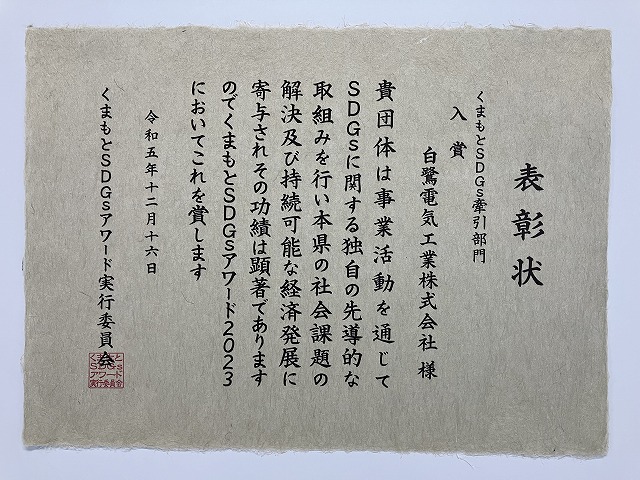 表彰状
くまもとSDGs牽引部門
入賞
白鷺電気工業株式会社 様
貴団体は事業活動を通じて
SDGsに関する独自の先導的な
取組みを行い本県の社会課題の
解決及び持続可能な経済発展に
寄与されその功績は顕著であります
のでくまもとSDGsアワード2023
においてこれを賞します
令和五年十二月十六日
くまもとSDGsアワード実行委員会
くまもと
SDGs
アワード
実行委員会